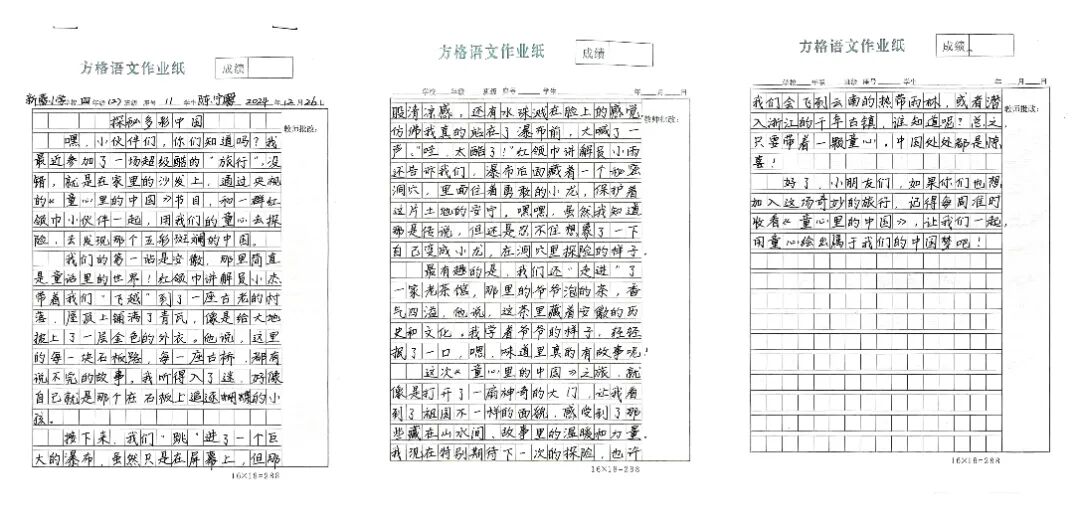 方格语文作业纸
成绩
学校 四 年级(2)班级 座号 11 学生 2024年12月26日
教师批改:
探秘多彩中国
嘿,小伙伴们,你们知道吗?我
最近参加了一场超级酷的“旅行”,没
错,就是在家里的沙发上,通过央视
的《童心里的中国》节目,和一群红
领巾小伙伴一起,用我们的童心去探
险,去发现那个五彩斑斓的中国。
我们的第一站是安徽,那里简直
是童话里的世界!红领巾讲解员小杰
带着我们“飞越”到了一座古老的村
落,屋顶上铺满了青瓦,像是给大地
披上了一层金色的外衣。他说,这里
的每一块石板路,每一座古桥,都有
说不完的故事,我听得入了迷,好像
自己就是那个在石板上追逐蝴蝶的小
孩。
接下来,我们“跳”进了一个巨
大的瀑布,虽然只是在屏幕上,但那
16×18=288
方格语文作业纸
成绩
学校 年级 班级 座号 学生 年 月 日
教师批改:
股清凉感,还有水珠溅在脸上的感觉,
仿佛我真的站在了瀑布前,大喊了一
声:“哇,太酷了!”红领巾讲解员小雨
还告诉我们,瀑布后面藏着一个秘密
洞穴,里面住着勇敢的小龙,保护着
这片土地的安宁,嘿嘿,虽然我知道
那是传说,但还是忍不住想象了一下
自己变成小龙,在洞穴里探险的样子。
最有趣的是,我们还“走进”了
一家老茶馆,那里的爷爷泡的茶,香
气四溢,他说,这茶里藏着安徽的历
史和文化。我学着爷爷的样子,轻轻
抿了一口,嗯,味道里真的有故事呢!
这次《童心里的中国》之旅,就
像是打开了一扇神奇的大门,让我看
到了祖国不一样的面貌,感受到了那
些藏在山水间、故事里的温暖和力量。
我现在特别期待下一次的探险,也许
16×18=288
方格语文作业纸
成绩
学校 年级 班级 座号 学生 年 月 日
教师批改:
我们会飞到云南的热带雨林,或者潜
入浙江的千年古镇,谁知道呢?总之,
只要带着一颗童心,中国处处都是惊
喜!
好了,小朋友们,如果你们也想
加入这场奇妙的旅行,记得每周准时
收看《童心里的中国》,让我们一起,
用童心绘出属于我们的中国梦吧!
16×18=288